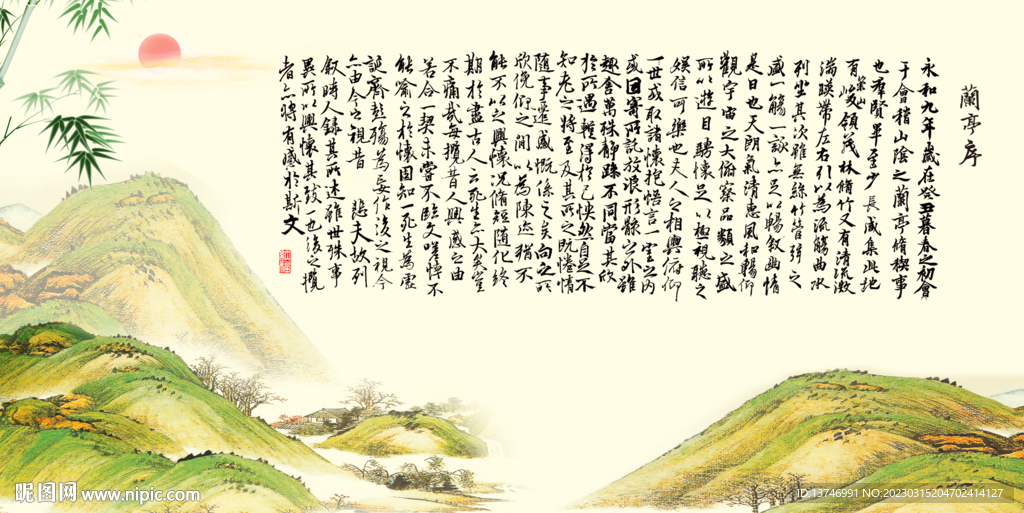 蘭亭序
永和九年歲在癸丑暮春之初會
于會稽山陰之蘭亭脩稧事
也羣賢畢至少長咸集此地
有崇山峻領茂林脩竹又有清流激
湍暎帶左右引以為流觴曲水
列坐其次雖無絲竹管弦之
盛一觴一詠亦足以暢敘幽情
是日也天朗氣清惠風和暢仰
觀宇宙之大俯察品類之盛
所以遊目騁懷足以極視聽之
娛信可樂也夫人之相與俯仰
一世或取諸懷抱悟言一室之內
或因寄所託放浪形骸之外雖
趣舍萬殊靜躁不同當其欣
於所遇輒得於己快然自足不
知老之將至及其所之既惓情
隨事遷感慨係之矣向之所
欣俛仰之閒以為陳迹猶不
能不以之興懷況脩短隨化終
期於盡古人云死生亦大矣豈
不痛哉每攬昔人興感之由
若合一契未嘗不臨文嗟悼不
能喻之於懷固知一死生為虛
誕齊彭殤為妄作後之視今
亦由今之視昔 悲夫故列
敘時人錄其所述雖世殊事
異所以興懷其致一也後之攬
者亦將有感於斯文
昵图网 www.nipic.com
ID:13746991 NO:20230315204702414127